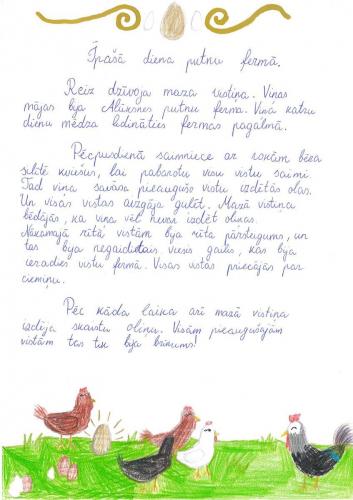 Īpašā diena putnu fermā.
Reiz dzīvoja maza vistiņa. Viņas
mājas bija Alūksnes putnu ferma. Viņa katru
dienu mēdza lidināties fermas pagalmā.
Pēcpusdienā saimniece ar rokām bēra
siltē kviešus, lai pabarotu visu vistu saimi.
Tad viņa savāca pieaugušo vistu izdētās olas.
Un visas vistas aizgāja gulēt. Mazā vistiņa
bēdājās, ka viņa vēl nevar izdēt oliņas.
Nākamajā rītā vistām bija rīta pārsteigums, un
tas bija negaidītais viesis gailis, kas bija
ieradies vistu fermā. Visas vistas priecājās par
ciemiņu.
Pēc kāda laika arī mazā vistiņa
izdēja skaistu oliņu. Visām pieaugušajām
vistām tas tik bija brīnums!